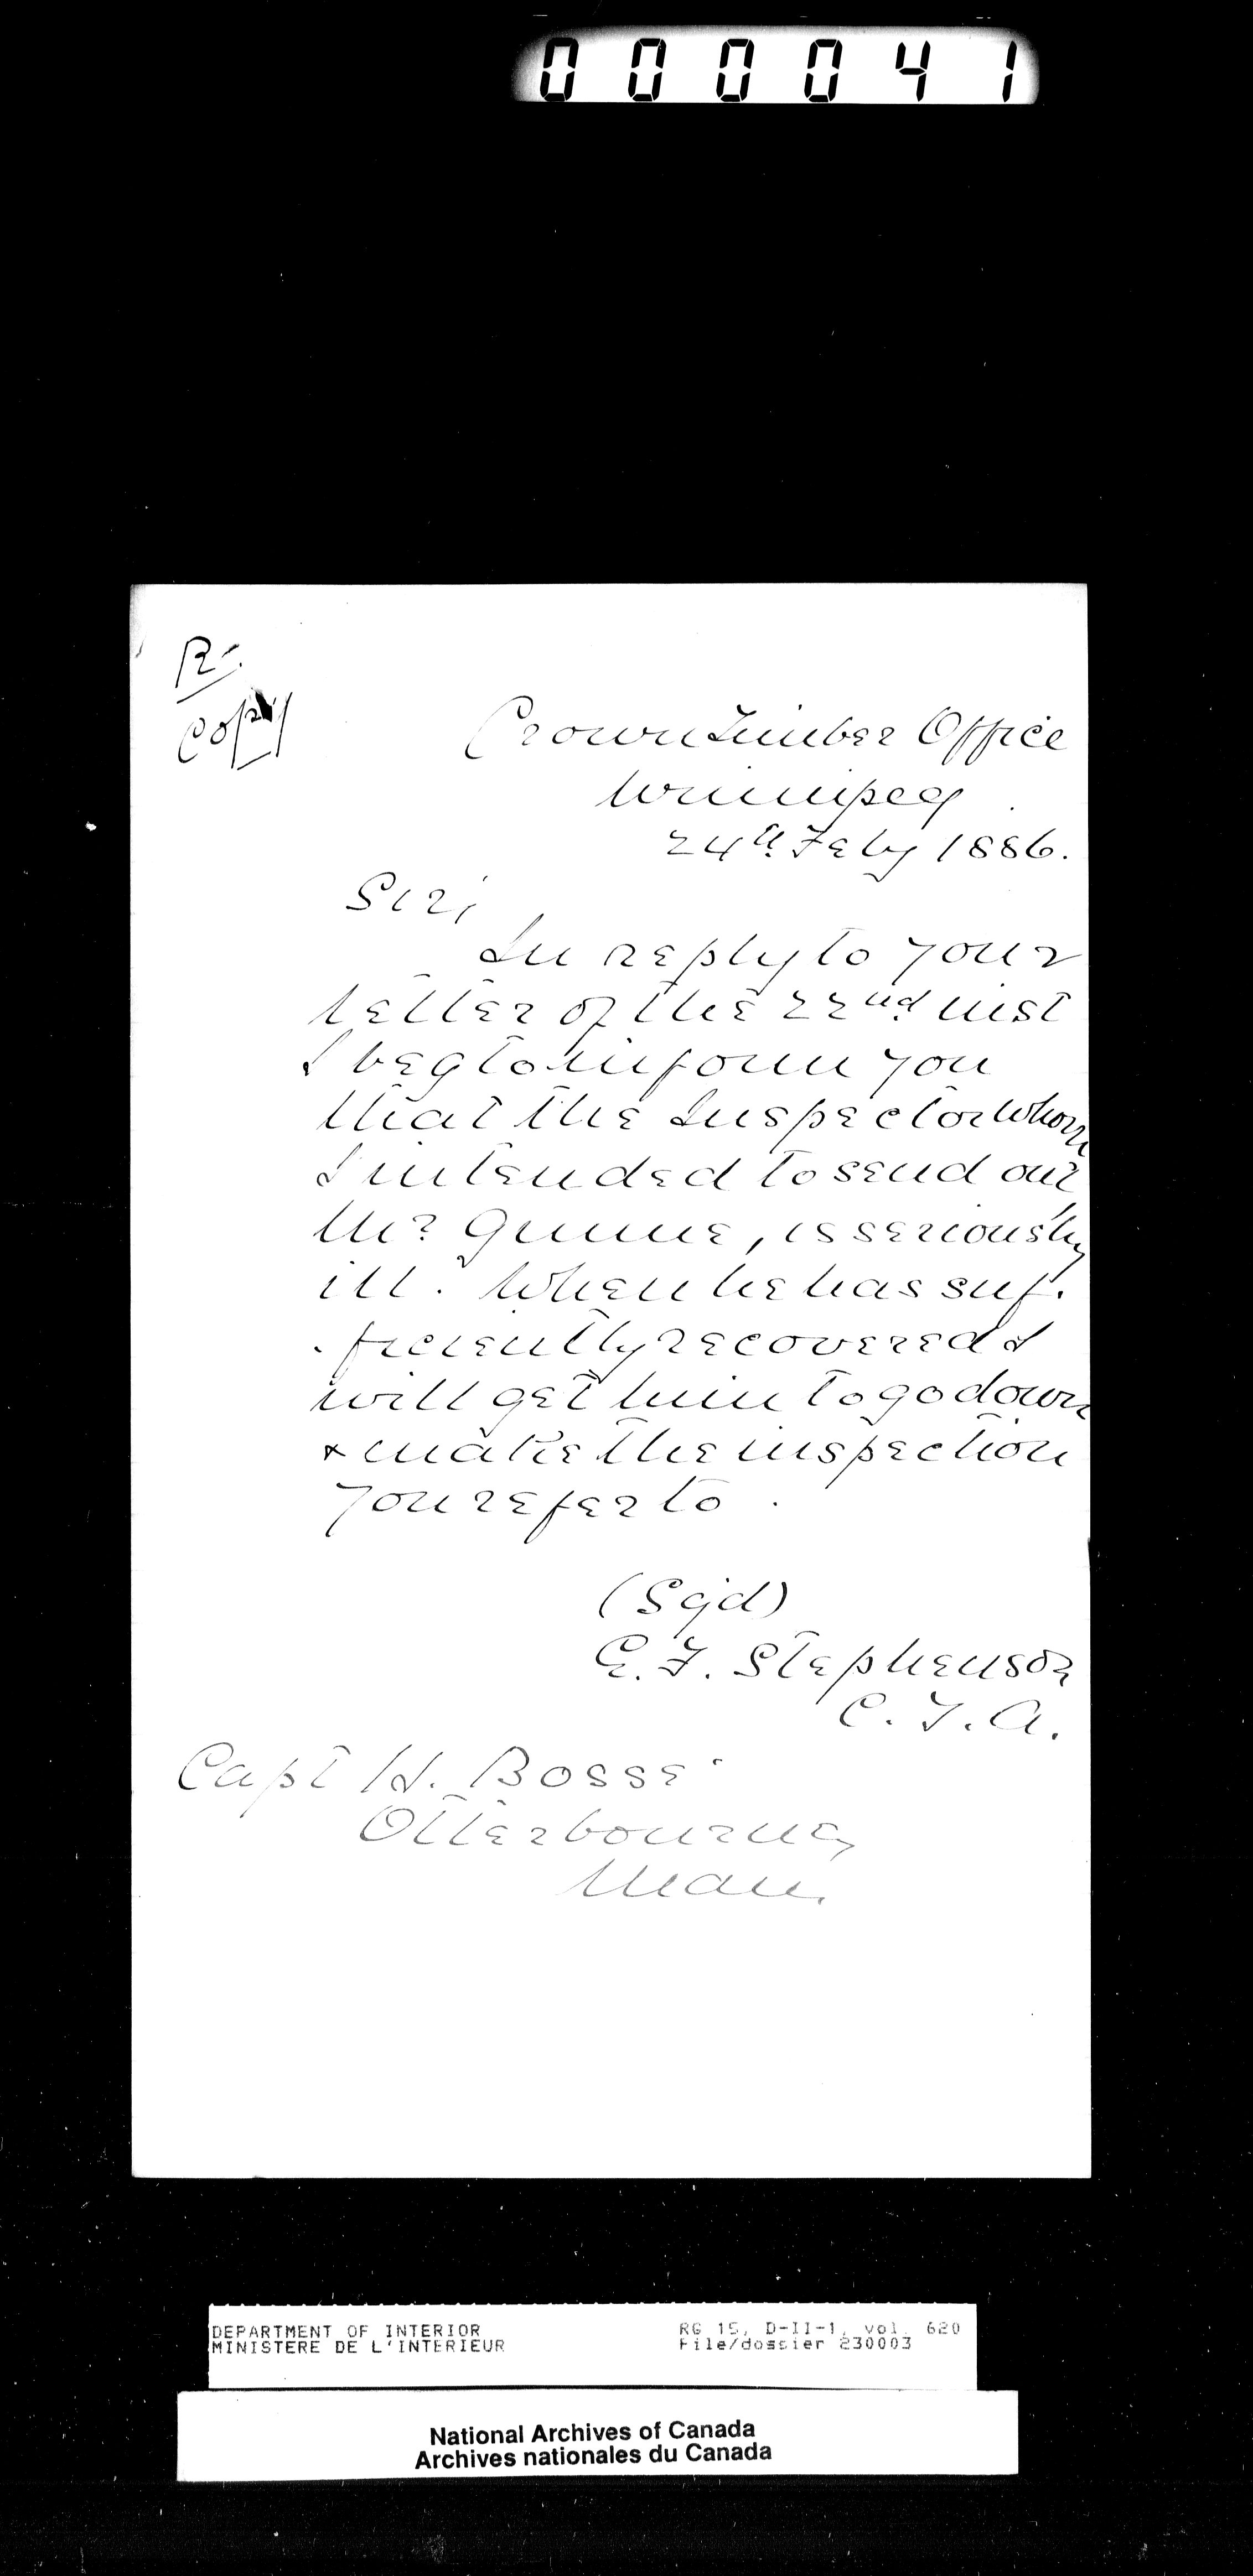 000041
R.
Copy
Crown Timber Office
Winnipeg
24th Feby 1886.
Sir,
In reply to your
letter of the 22nd inst
I beg to inform you
that the Inspector whom
I intended to send out
Mr Gunne, is seriously
ill. When he has suf-
-ficiently recovered I
will get him to go down
& make the inspection
you refer to.
(Sgd)
E. F. Stephenson
C. T. A.
Capt H. Bossé
Otterbourne,
Man.
DEPARTMENT OF INTERIOR
MINISTERE DE L'INTERIEUR
RG 15, D-II-1, vol. 620
File/dossier 230003
National Archives of Canada
Archives nationales du Canada